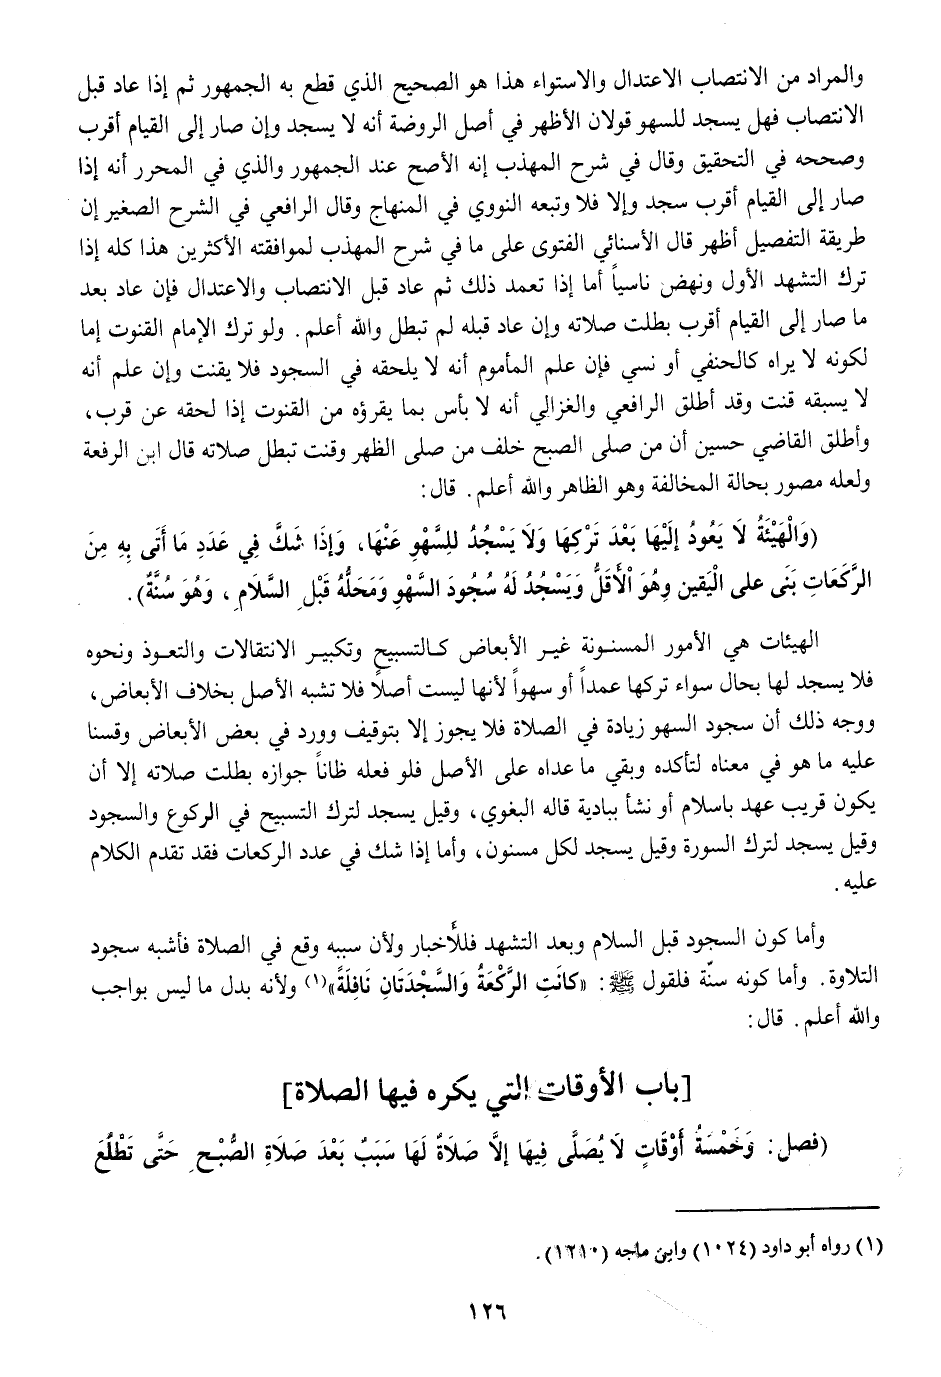 والمراد من الانتصاب الاعتدال والاستواء هذا هو الصحيح الذي قطع به الجمهور ثم إذا عاد قبل
الانتصاب فهل يسجد للسهو قولان الأظهر في أصل الروضة أنه لا يسجد وإن صار إلى القيام أقرب
وصححه في التحقيق وقال في شرح المهذب إنه الأصح عند الجمهور والذي في المحرر أنه إذا
صار إلى القيام أقرب سجد وإلا فلا وتبعه النووي في المنهاج وقال الرافعي في الشرح الصغير إن
طريقة التفصيل أظهر قال الأسنائي الفتوى على ما في شرح المهذب لموافقته الأكثرين هذا كله إذا
ترك التشهد الأول ونهض ناسياً أما إذا تعمد ذلك ثم عاد قبل الانتصاب والاعتدال فإن عاد بعد
ما صار إلى القيام أقرب بطلت صلاته وإن عاد قبله لم تبطل والله أعلم. ولو ترك الإمام القنوت إما
لكونه لا يراه كالحنفي أو نسي فإن علم المأموم أنه لا يلحقه في السجود فلا يقنت وإن علم أنه
لا يسبقه قنت وقد أطلق الرافعي والغزالي أنه لا بأس بما يقرؤه من القنوت إذا لحقه عن قرب،
وأطلق القاضي حسين أن من صلى الصبح خلف من صلى الظهر وقنت تبطل صلاته قال ابن الرفعة
ولعله مصور بحالة المخالفة وهو الظاهر والله أعلم. قال:
(وَالْهَيْئَةُ لَا يَعُودُ إلَيْهَا بَعْدَ تَرْكِهَا وَلَا يَسْجُدُ لِلسَّهْوِ عَنْهَا، وَإذَا شَكَّ فِي عَدَدِ مَا أَتَى بِهِ مِنَ
الرَّكَعَاتِ بَنَى على الْيَقين وهُوَ الْأَقَلُّ وَيَسْجُدُ لَهُ سُجُودَ السَّهْوِ وَمَحَلُّهُ قَبْلِ السَّلَامِ، وَهُوَ سُنَّةٌ).
الهيئات هي الأمور المسنونة غير الأبعاض كالتسبيح وتكبير الانتقالات والتعوذ ونحوه
فلا يسجد لها بحال سواء تركها عمداً أو سهواً لأنها ليست أصلاً فلا تشبه الأصل بخلاف الأبعاض،
ووجه ذلك أن سجود السهو زيادة في الصلاة فلا يجوز إلا بتوقيف وورد في بعض الأبعاض وقسنا
عليه ما هو في معناه لتأكده وبقي ما عداه على الأصل فلو فعله ظاناً جوازه بطلت صلاته إلا أن
يكون قريب عهد باسلام أو نشأ ببادية قاله البغوي، وقيل يسجد لترك التسبيح في الركوع والسجود
وقيل يسجد لترك السورة وقيل يسجد لكل مسنون، وأما إذا شك في عدد الركعات فقد تقدم الكلام
عليه.
وأما كون السجود قبل السلام وبعد التشهد فللأخبار ولأن سببه وقع في الصلاة فأشبه سجود
التلاوة. وأما كونه سنّة فلقول ﷺ: «كانَتِ الرَّكْعَةُ وَالسَّجْدَتَانِ نَافِلَةً»(١) ولأنه بدل ما ليس بواجب
والله أعلم. قال:
[باب الأوقات التي يكره فيها الصلاة]
(فصل: وَخَمْسَةُ أَوْقَاتٍ لَا يُصَلَّى فِيهَا إلَّا صَلَاةٌ لَهَا سَبَبٌ بَعْدَ صَلَاةِ الصُّبْحِ حَتَّى تَطْلُعَ
(١) رواه أبو داود (١٠٢٤) وابن ماجه (١٢١٠).
١٢٦